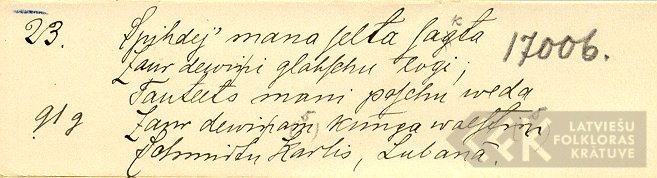 23. Spihdej' mana selta sagta 17006.
k
Zaur dewiņi glahschu logi;
Tauteets mani paschu weda
919 Zaur dewiņam kunga walstim
Schmidtu Karlis, Lubanā.
LATVIEŠU
FOLKLORAS
KRĀTUVE